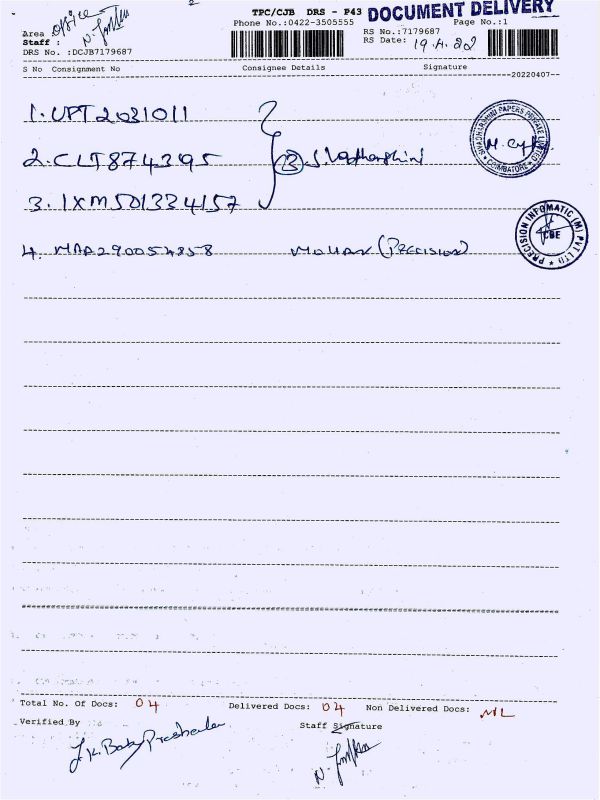 TPC/CJB DRS - P43 DOCUMENT DELIVERY
Phone No.:0422-3505555 Page No.:1
Area : Office
Staff :
DRS No. :DCJB7179687
RS No.:7179687
RS Date: 19.4.22
S No Consignment No Consignee Details Signature
20220407
1. UPT2031011
2. CLT874395 3
3. IXM501334157
SIVADHARSHINI PAPERS PRIVATE LIMITED
COIMBATORE
4. MAA290054858 MOHAN (PRECISION)
PRECISION INFOMATIC (M) PVT LTD
CBE
Total No. Of Docs: 04 Delivered Docs: 04 Non Delivered Docs: NIL
Verified By Staff Signature